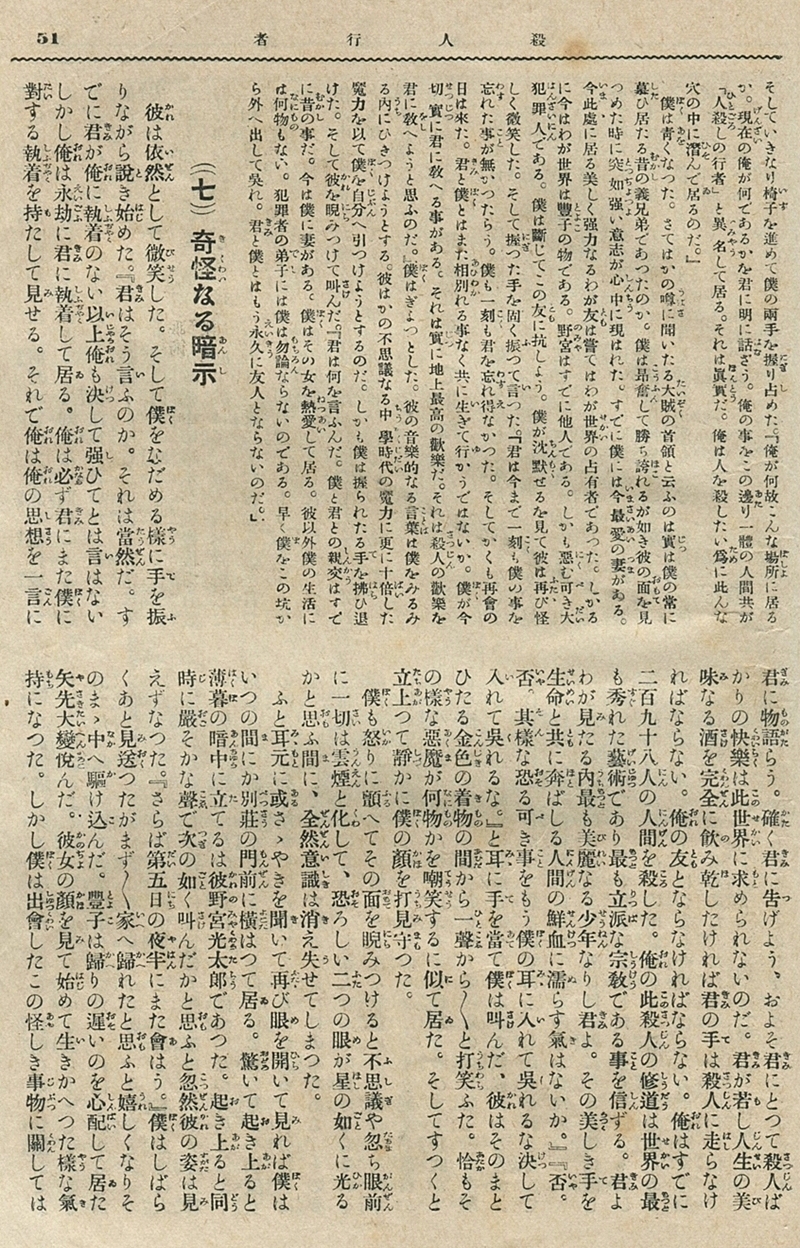 51
殺人行者
そしていきなり椅子を進めて僕の兩手を握り占めた『俺が何故こんな場所に居る
か。現在の俺が何であるかを君に明に話ざう。俺の事をこの邊り一體の人間共が
『人殺しの行者』と異名して居る。それは眞實だ。俺は人を殺したい爲に此んな
穴の中に潛んで居るのだ。』
僕は青くなつた。さてはかの噂に聞いたる大賊の首領と云ふのは實は僕の常に
慕ひ居たる昔の義兄弟であつたのか。僕は昂奮して勝ち誇れるが如き彼の面を見
つめた時に突如强い意志が心中に現はれた。すでに僕には今最愛の妻がある。
今此處に居る美しく强力なるわが友は嘗てはわが世界の占有者であつた。しかる
に今はわが世界は豐子の物である。野宮はすでに他人である。しかも惡む可き大
犯罪人である。僕は斷じてこの友に抗しよう。僕が沈默せるを見て彼は再び怪
しく微笑した。そして握つた手を固く振つて言つた。『君は今まで一刻も僕の事を
忘れた事が無かつたらう。僕も一刻も君を忘れ得なかつた。そしてかくも再會の
日は來た。君と僕とはまた相別れる事なく共に生きて行かうではないか。僕が今
切實に君に敎へる事がある。それは實に地上最高の歡樂だ。それは殺人の歡樂を
君に敎へようと思ふのだ。』僕はぎよつとした。彼の音樂的なる言葉は僕をみるみ
る内にひきつけようとする。彼はかの不思議なる中學時代の魔力に更に十倍した
魔力を以て僕を自分へ引つけようとするのだ。しかも僕は握られたる手を拂ひ退
けた。そして彼を睨みつけて叫んだ。『君は何を言ふんだ。僕と君との親交はすで
に昔の事だ。今は僕に妻がある。僕はその女を熱愛して居る。彼以外僕の生活に
は何物もない。犯罪者の弟子には僕は勿論ならないのである。早く僕をこの坑か
ら外へ出して吳れ。君と僕とはもう永久に友人とならないのだ。』
(七) 奇怪なる暗示
彼は依然として微笑した。そして僕をなだめる樣に手を振
りながら說き始めた。『君はそう言ふのか。それは當然だ。す
でに君が俺に執着のない以上俺も決して强ひてとは言はない
しかし俺は永劫に君に執着して居る。俺は必ず君にまた僕に
對する執着を持たして見せる。それで俺は俺の思想を一言に
君に物語らう。確く君に告げよう、およそ君にとつて殺人ば
かりの快樂は此世界に求められないのだ。君が若し人生の美
味なる酒を完全に飮み乾したければ君の手は殺人に走らなけ
ればならない。俺の友とならなければならない。俺はすでに
二百九十八人の人間を殺した。俺の此殺人の修道は世界の最
も秀れた藝術であり最も立派な宗敎である事を信ずる。君よ
わが見たる内最も美麗なる少年なりし君よ。その美しき手を
生命と共に奔ばしる人間の鮮血に濡らす氣はないか。』『否。
否。其樣な恐る可き事をもう僕の耳に入れて吳れるな決して
入れて吳れるな。』と耳に手を當て僕は叫んだ、彼はそのまと
ひたる金色の着物の間から一聲から〳〵と打笑ふた。恰もそ
の樣な惡魔が何物かを嘲笑するに似て居た。そしてすつくと
立上つて靜かに僕の顏を打見守つた。
僕も怒りに顫へてその面を睨みつけると不思議や忽ち眼前
に一切は雲煙と化して、恐ろしい二つの眼が星の如くに光る
かと思ふ間に、全然意識は消え失せてしまつた。
ふと耳元に或さゝやきを聞いて再び眼を開いて見れば僕は
いつの間にか別莊の門前に橫はつて居る。驚いて起き上ると
薄暮の暗中に立てるは彼野宮光太郎であつた。起き上ると同
時に嚴そかな聲で次の如く叫んだかと思ふと忽然彼の姿は見
えずなつた。『さらば第五日の夜半にまた會はう。』僕はしばら
くあと見送つたがまづ〳〵家へ歸れたと思ふと嬉しくなりそ
のまゝ中へ駆け込んだ。豐子は歸りの遲いのを心配して居た
矢先大變悅んだ。彼女の顏を見て始めて生きかへつた樣な氣
持になつた。しかし僕は出會したこの怪しき事物に關しては